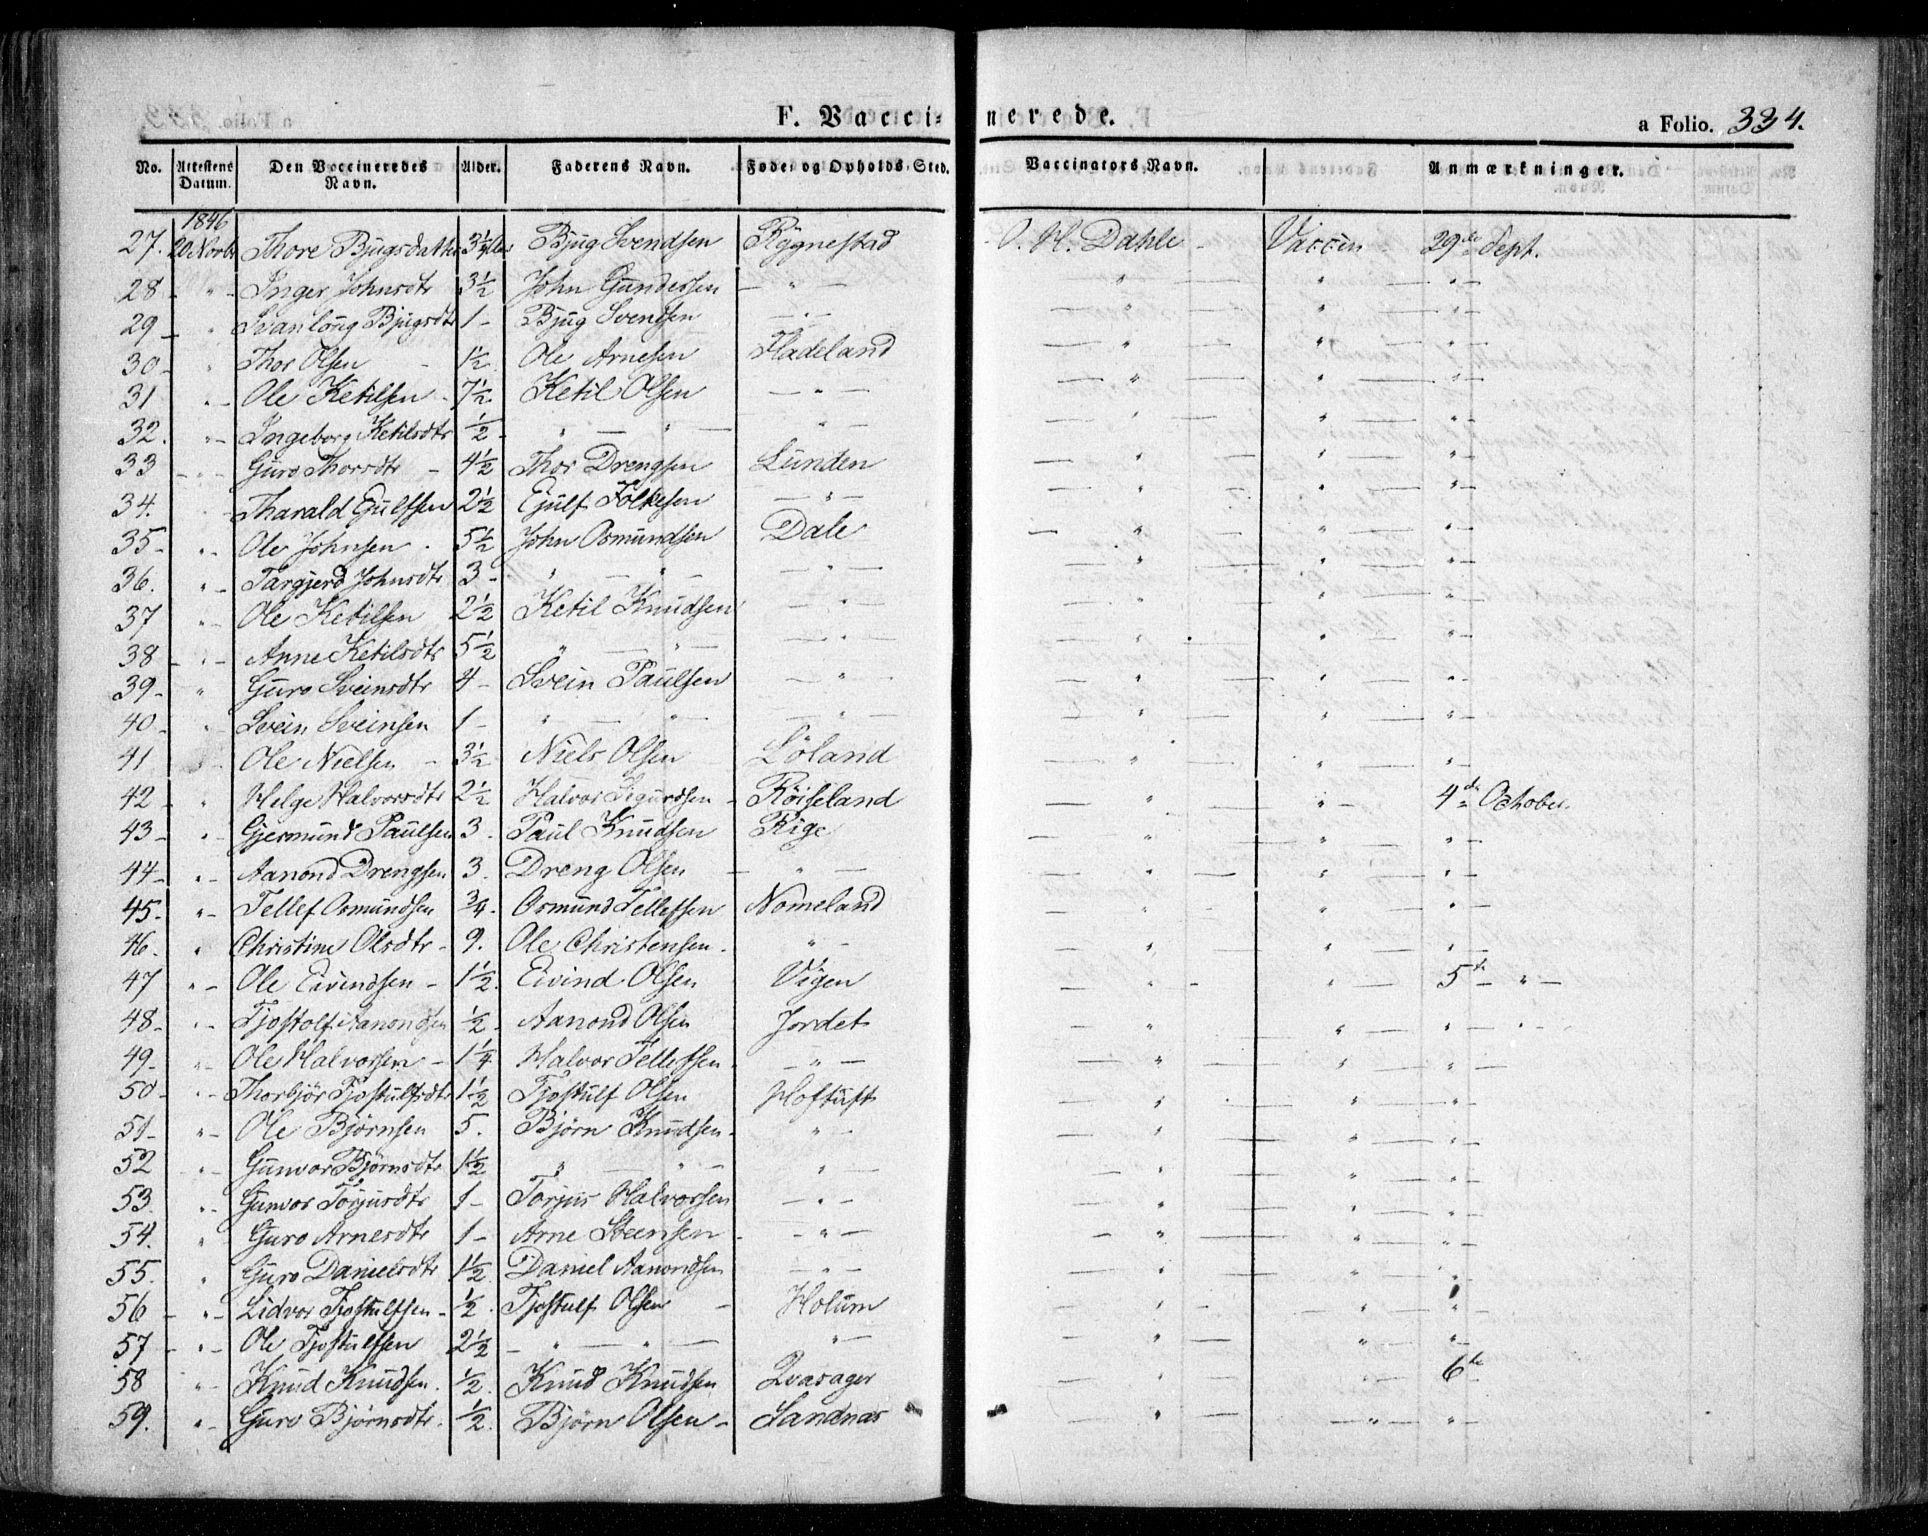 F. Vaccinerede. a Folio. 334.
No. Attestens Datum. Den Vaccineredes Navn. Alder. Faderens Navn. Føde- og Opholds-Sted. Vaccinators Navn. Anmærkninger.
1846
27. 20 Novbr Thore Bjugsdatter 3½ Bjug Svendsen Rygnestad O. H. Dahle - Vaccin 29de Sept.
28 - " - Inger Johnsdtr 3½ John Gundersen — " — — " — " — " -
29 - " Svanloug Bjugsdtr 1 - Bjug Svendsen — " — — " — " — " -
30 - " Thor Olsen - 1½ Ole Arnesen Fladeland — " — " — " -
31 " - Ole Ketilsen - 7½ Ketil Olsen — " — — " — " — " -
32. " - Ingeborg Ketilsdtr ½ - " — " — — " — — " — " — " -
33 - " - Guro Thorsdtr - 4½ Thor Drengsen Lunden — " — " — " -
34. " Tharald Ejulfsen 2½ Ejulf Folkesen — " — — " — " — " -
35 - " - Ole Johnsen - 5½ John Osmundsen Dale — " — " — " -
36. " - Targjerd Johnsdtr 3 - " — " — — " — — " — " — " -
37 " - Ole Ketilsen 2½ Ketil Knudsen — " — — " — " — " -
38 - " - Anne Ketilsdtr 5½ " — " — — " — — " — " — " -
39 - " Guro Sveinsdtr 4 - Svein Paulsen — " — — " — " — " -
40 - " Svein Sveinsen 1 - " — " — — " — — " — " — " -
41 " - Ole Nielsen - 3½ Niels Olsen Löland — " — " — " -
42 - " Helge Halvorsdtr 2½ Halvor Sigurdsen - Röiseland — " — " - 4de October.
43 - " Gjermund Paulsen 3. Paul Knudsen Rige — " — " — " -
44 - " - Aanond Drengsen 3. Dreng Olsen — " — — " — " — " -
45. " - Tellef Osmundsen ¾ Osmund Tellefsen Nomeland — " — " — " -
46 - " Christine Olsdtr - 9. Ole Christensen. " - — " — " — " -
47 " - Ole Eivindsen - 1½. Eivind Olsen Vigen — " - " — 5te " —
48 - " - Tjostolf Aanondsen ½ - Aanond Olsen Jordet — " — " — " - " -
49 - " - Ole Halvorsen - 1¼ Halvor Tellefsen. — " — — " — " — " -
50 - " - Thorbjör Tjostulfsdtr 1½ Tjostulf Olsen Hoftuft — " — " — " -
51 - " - Ole Björnsen 5. Björn Knudsen - " - — " — " — " -
52 " - Gunvor Björnsdtr 1½ " — " — " — — " — " — " -
53. " - Gunvor Torjusdtr 1 - Torjus Halvorsen — " — — " — " — " -
54. " Guro Arnesdtr 1 - Arne Steensen - — " — — " — " — " -
55. " Guro Danielsdtr 1½ Daniel Aanondsen — " — — " — " — " -
56 - " - Lidvor Tjostulfsen - ½. Tjostulf Olsen - Holum — " — " — " -
57 - " - Ole Tjostulfsen 2½ - " — " — " - — " — " — " -
58 " - Knud Knudsen. ½. Knud Knudsen Qvasager — " — " — 6te
59. " Guro Björnsdtr. ½. Björn Olsen - Sandnæs — " — " — " -